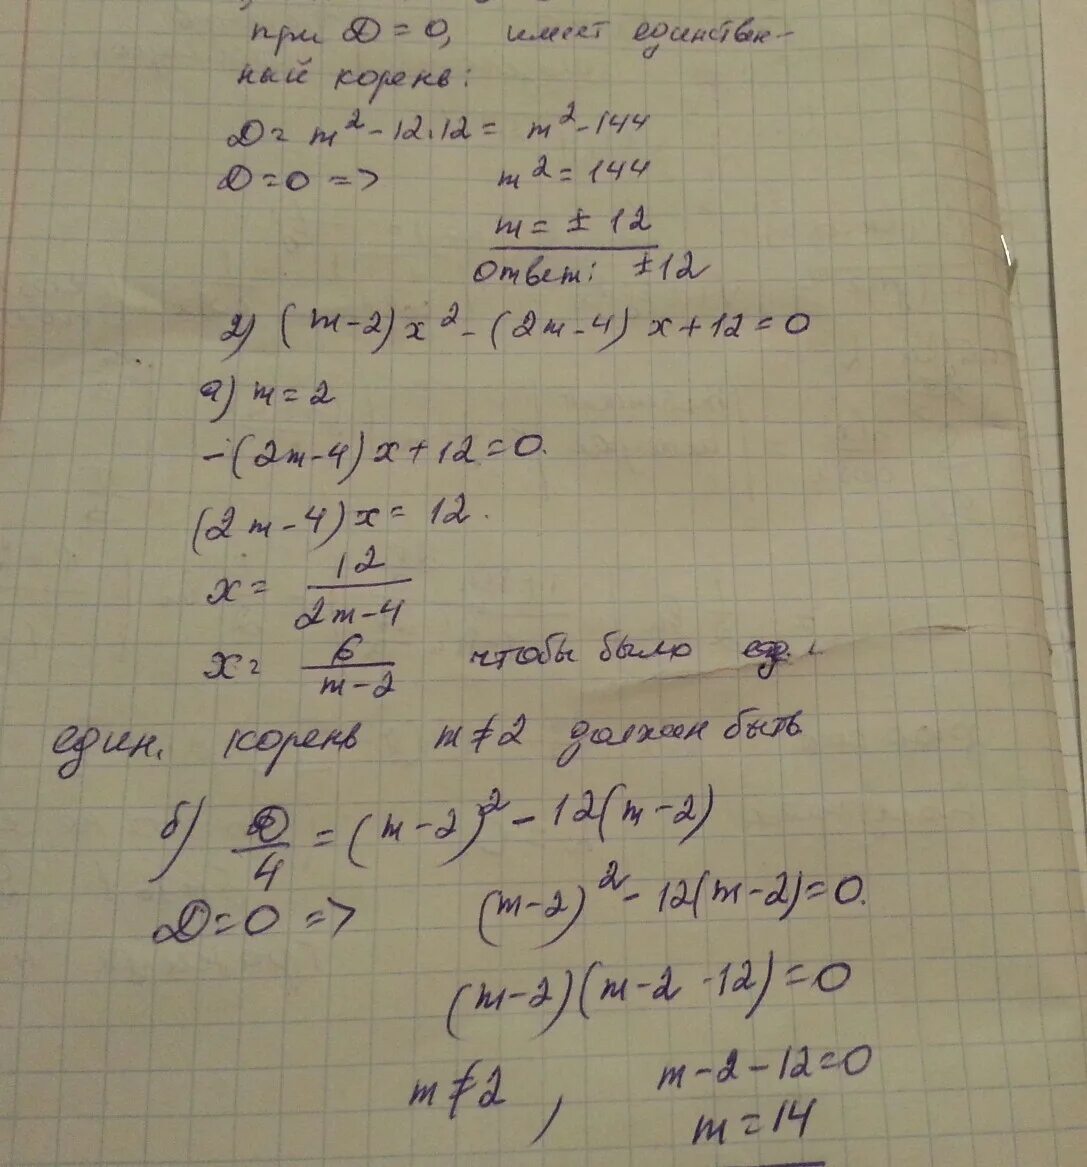 при D = 0, имеет единствен-
ный корень:
D = m² - 12·12 = m² - 144
D = 0 => m² = 144
m = ± 12
Ответ: ±12
2) (m-2)x² - (2m-4)x + 12 = 0
а) m = 2
-(2m-4)x + 12 = 0.
(2m-4)x = 12.
x = 12/(2m-4)
x = 6/(m-2) чтобы было
един. корень m ≠ 2 должен быть
б) D/4 = (m-2)² - 12(m-2)
D = 0 => (m-2)² - 12(m-2) = 0.
(m-2)(m-2-12) = 0
m ≠ 2, m-2-12 = 0
m = 14